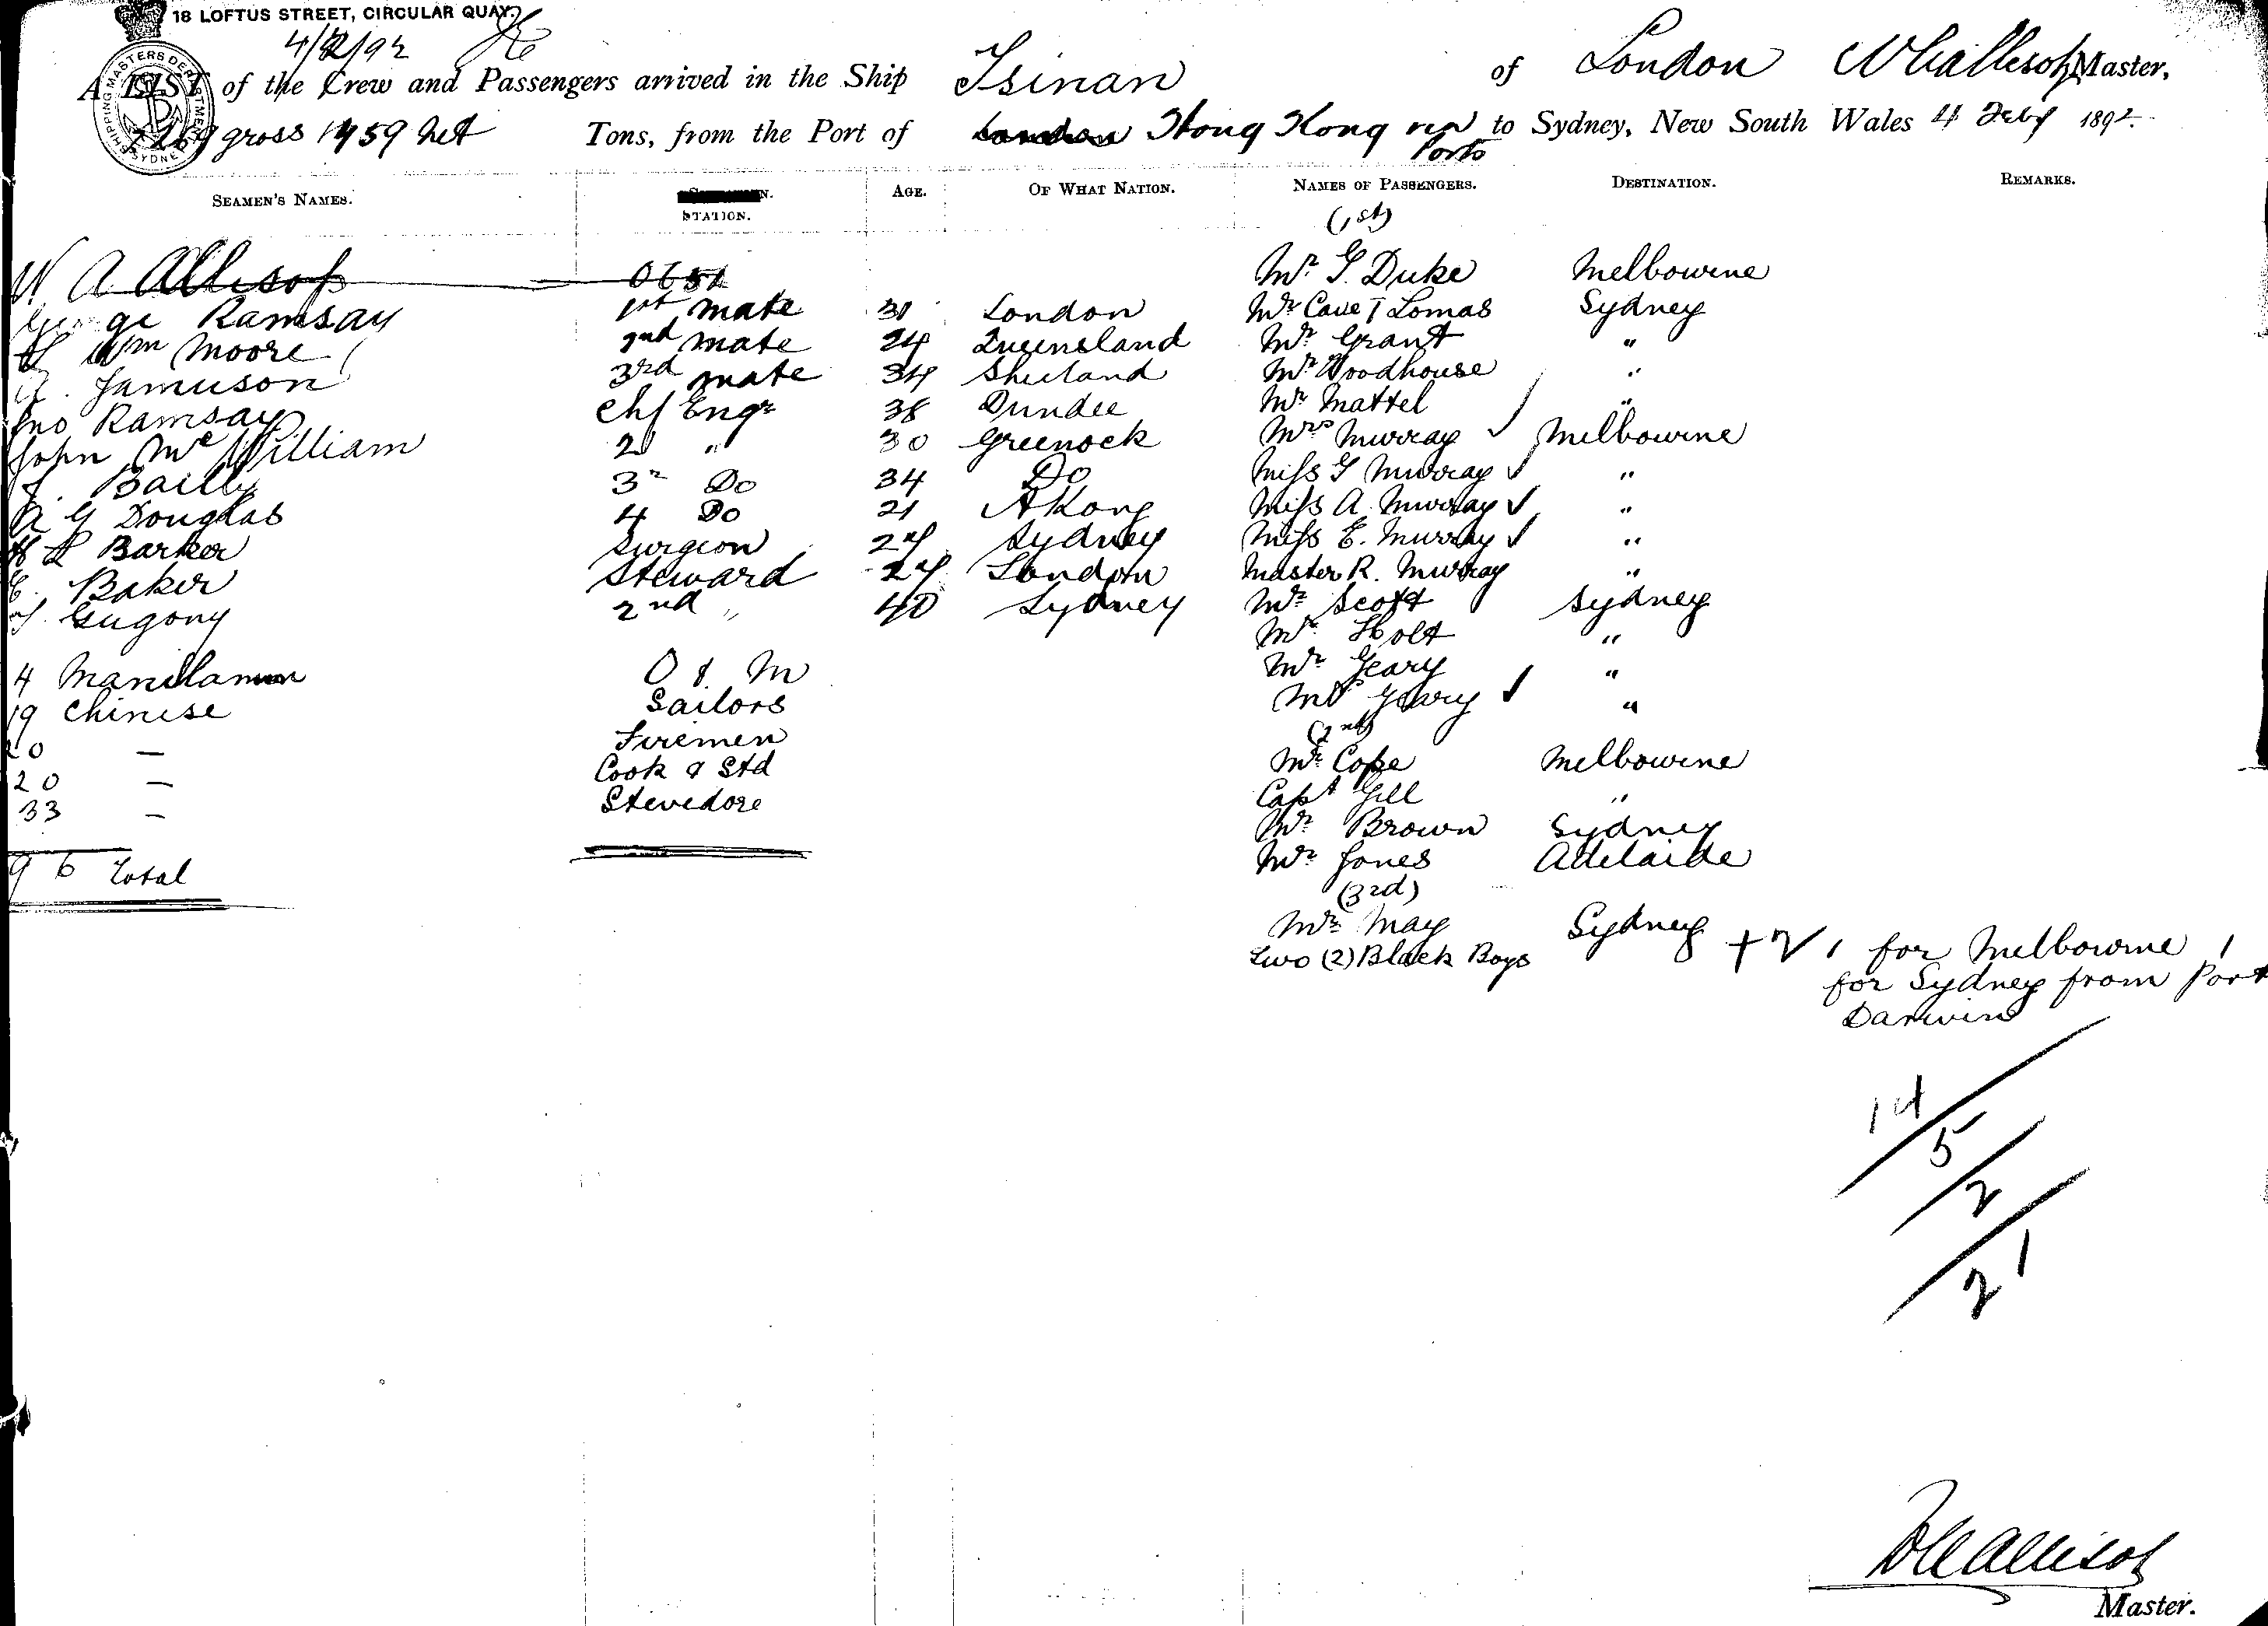 18 LOFTUS STREET, CIRCULAR QUAY.
4/2/92
A LIST of the Crew and Passengers arrived in the Ship Tsinan of London W A Allison, Master,
2269 gross 1459 Net Tons, from the Port of London Hong Kong via Ports to Sydney, New South Wales 4 Feby 1892.
SHIPPING MASTERS DEPARTMENT SYDNEY
SEAMEN'S NAMES. STATION. AGE. OF WHAT NATION. NAMES OF PASSENGERS. DESTINATION. REMARKS.
(1st)
W A Allison Mr. G. Duke Melbourne
George Ramsay 1st mate 31 London Mr Cave T Lomas Sydney
Wm Moore 2nd mate 24 Queensland Mr Grant "
Jamieson 3rd mate 34 Shetland Mr Woodhouse "
Jno Ramsay Chf Engr 38 Dundee Mr Mattel "
John McWilliam 2 " 30 Greenock Mrs Murray Melbourne
J. Baily 3r Do 34 Do Miss G Murray "
G Douglas 4 Do 21 HKong Miss A. Murray "
Barker Surgeon 24 Sydney Miss E. Murray "
E. Baker Steward 24 London Master R. Murray "
Gugony 2nd " 40 Sydney Mr Scott Sydney
Mr. Holt "
4 Manilamen O & M Mr Geary "
19 Chinese Sailors Mrs Geary "
(2nd)
20 — Firemen Mr Cope Melbourne
20 — Cook & Std Capt Gill "
33 — Stevedore Mr Brown Sydney
96 Total Mr Jones Adelaide
(3rd)
Mr May Sydney
Two (2) Black Boys + 2/ 1 for Melbourne 1
for Sydney from Port
Darwin
14/5/2/1
2
W A Allison
Master.